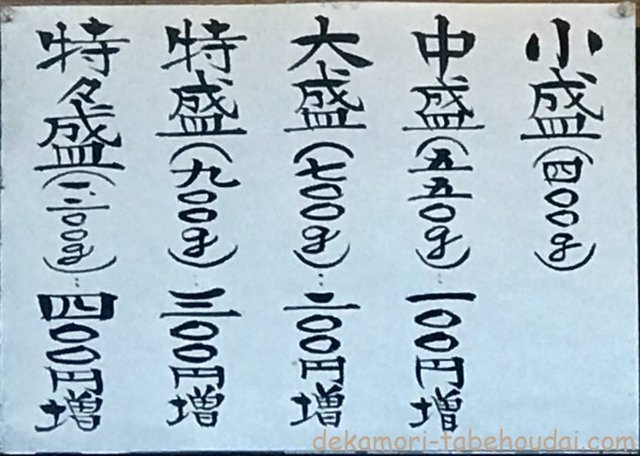 小盛(四〇〇g)
中盛(五五〇g)…一〇〇円増
大盛(七〇〇g)…二〇〇円増
特盛(九〇〇g)…三〇〇円増
特々盛(一、二〇〇g)…四〇〇円増
dekamori-tabehoudai.com